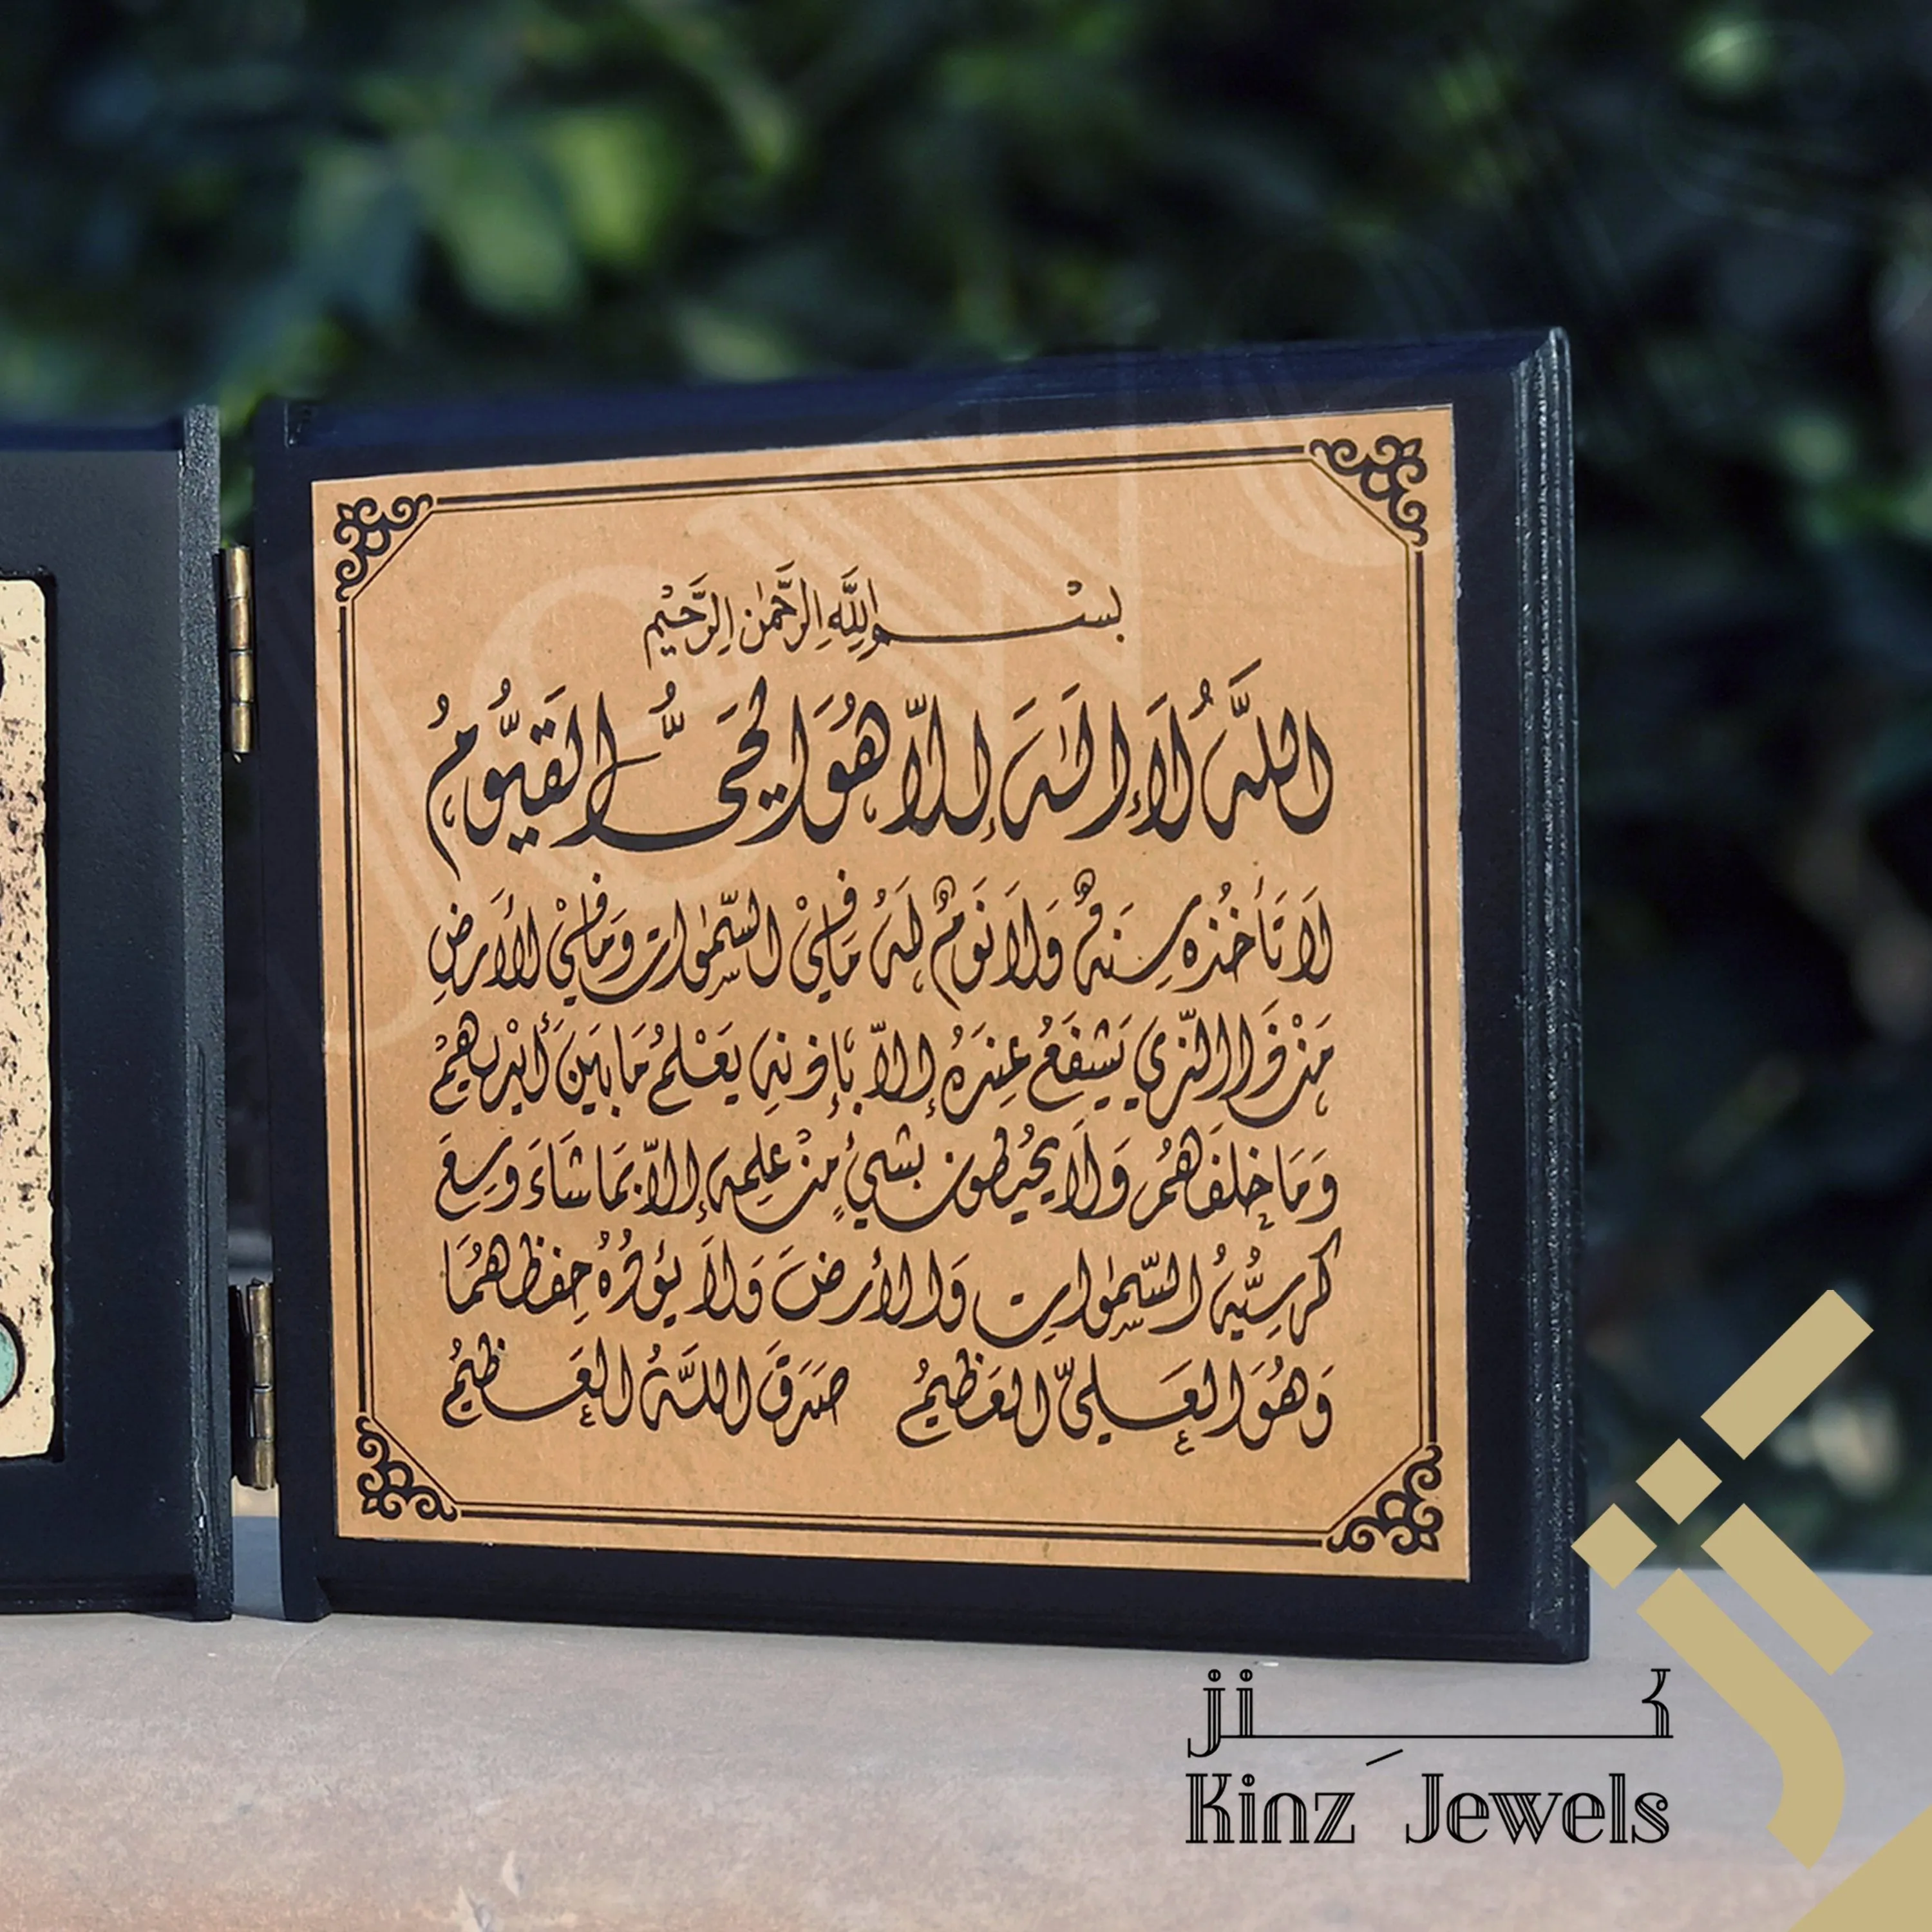 بِسْمِ اللَّهِ الرَّحْمٰنِ الرَّحِيْمِ
اللَّهُ لَا إِلٰهَ إِلَّا هُوَ الْحَيُّ الْقَيُّومُ
لَا تَأْخُذُهُ سِنَةٌ وَلَا نَوْمٌ لَهُ مَا فِيْ السَّمٰوَاتِ وَمَا فِيْ الْأَرْضِ
مَنْ ذَا الَّذِي يَشْفَعُ عِنْدَهُ إِلَّا بِإِذْنِهِ يَعْلَمُ مَا بَيْنَ أَيْدِيهِمْ
وَمَا خَلْفَهُمْ وَلَا يُحِيْطُونَ بِشَيْءٍ مِنْ عِلْمِهِ إِلَّا بِمَا شَاءَ وَسِعَ
كُرْسِيُّهُ السَّمٰوَاتِ وَالْأَرْضَ وَلَا يَؤُدُهُ حِفْظُهُمَا
وَهُوَ الْعَلِيُّ الْعَظِيْمُ صَدَقَ اللَّهُ الْعَظِيْمُ
ji كنز
Kinz Jewels